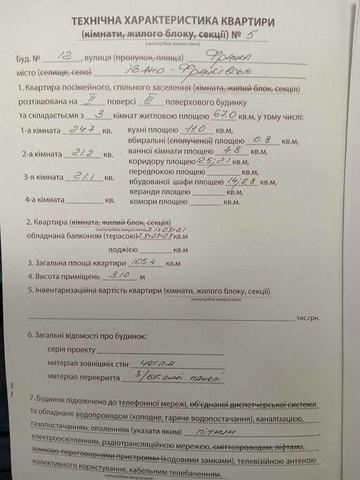 ТЕХНІЧНА ХАРАКТЕРИСТИКА КВАРТИРИ
(кімнати, жилого блоку, секції) № 5
(непотрібне викреслити)
Буд. № 12, вулиця (провулок, площа) Франка
місто (селище, село) Івано-Франківськ
1. Квартира посімейного, спільного заселення (кімнати, жилого блоку, секції)
розташована на II поверсі III поверхового будинку
та складається з 3 кімнат житловою площею 67.0 кв.м, у тому числі:
1-а кімната 24.7 кв. кухні площею 11.0 кв.м,
вбиральні (сполученої) площею 0.8 кв.м,
2-а кімната 21.2 кв. ванної кімнати площею 4.8 кв.м,
коридору площею 12.5; 2.1 кв.м,
3-я кімната 21.1 кв. передпокою площею кв.м,
вбудованої шафи площею кв.м,
веранди площею кв.м,
4-а кімната кв. комори площею кв.м.
2. Квартира (кімнати, жилий блок, секція)
(непотрібне викреслити)
обладнана балконом (терасою) кв.м
лоджією кв.м
3. Загальна площа квартири 105.4 кв.м
4. Висота приміщень 3.10 м
5. Інвентаризаційна вартість квартири (кімнати, жилого блоку, секції)
(непотрібне викреслити)
тис.грн.
6. Загальні відомості про будинок:
серія проекту
матеріал зовнішніх стін цегла
матеріал перекриття з/бетонні панелі
7. Будинок підключено до телефонної мережі, об'єднаної диспетчерської системи
та обладнано водопроводом (холодне, гаряче водопостачання), каналізацією,
газопостачанням, опаленням (указати яким)
електроосвітленням, радіотрансляційною мережею, сміттєпроводом, ліфтами,
замково-переговорними пристроями (кодовими замками), телевізійною антеною
колективного користування, кабельним телебаченням.